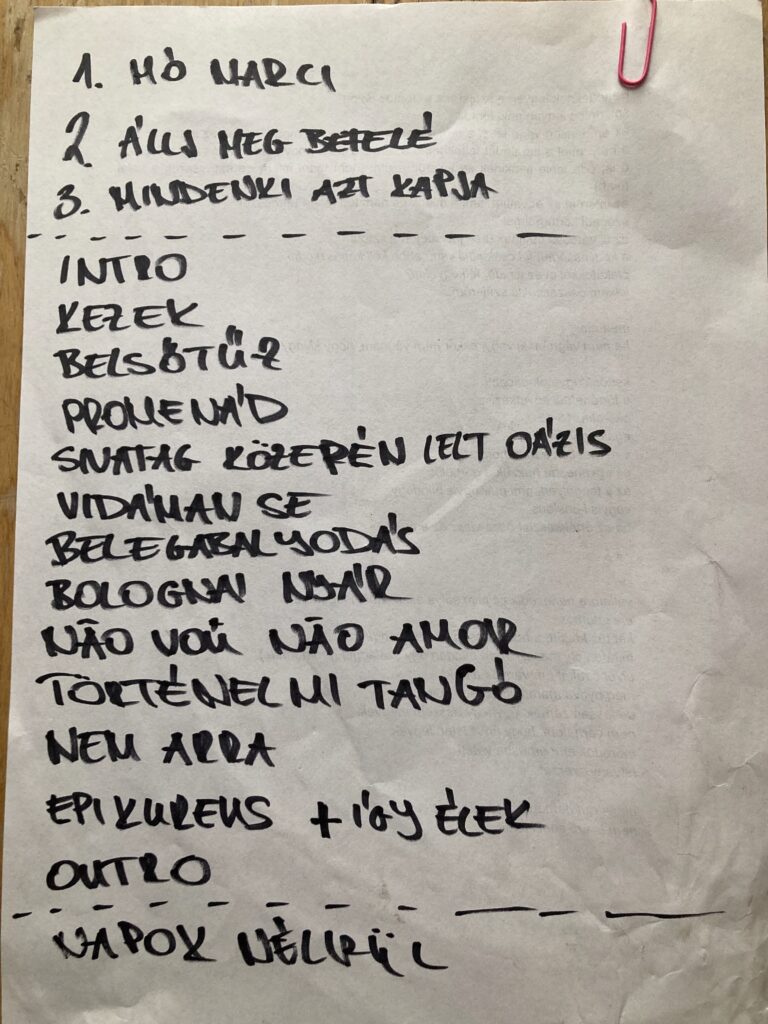 1. HÓ MARCI
2. ÁLLJ MEG BEFELÉ
3. MINDENKI AZT KAPJA
INTRO
KEZEK
BELSŐ TŰZ
PROMENÁD
SIVATAG KÖZEPÉN LELT OÁZIS
VIDÁMAN SE
BELEGABALYODÁS
BOLOGNAI NYÁR
NÃO VOÚ NÃO AMOR
TÖRTÉNELMI TANGÓ
NEM ARRA
EPIKUREUS + ÍGY ÉLEK
OUTRO
NAPOK NÉLKÜL